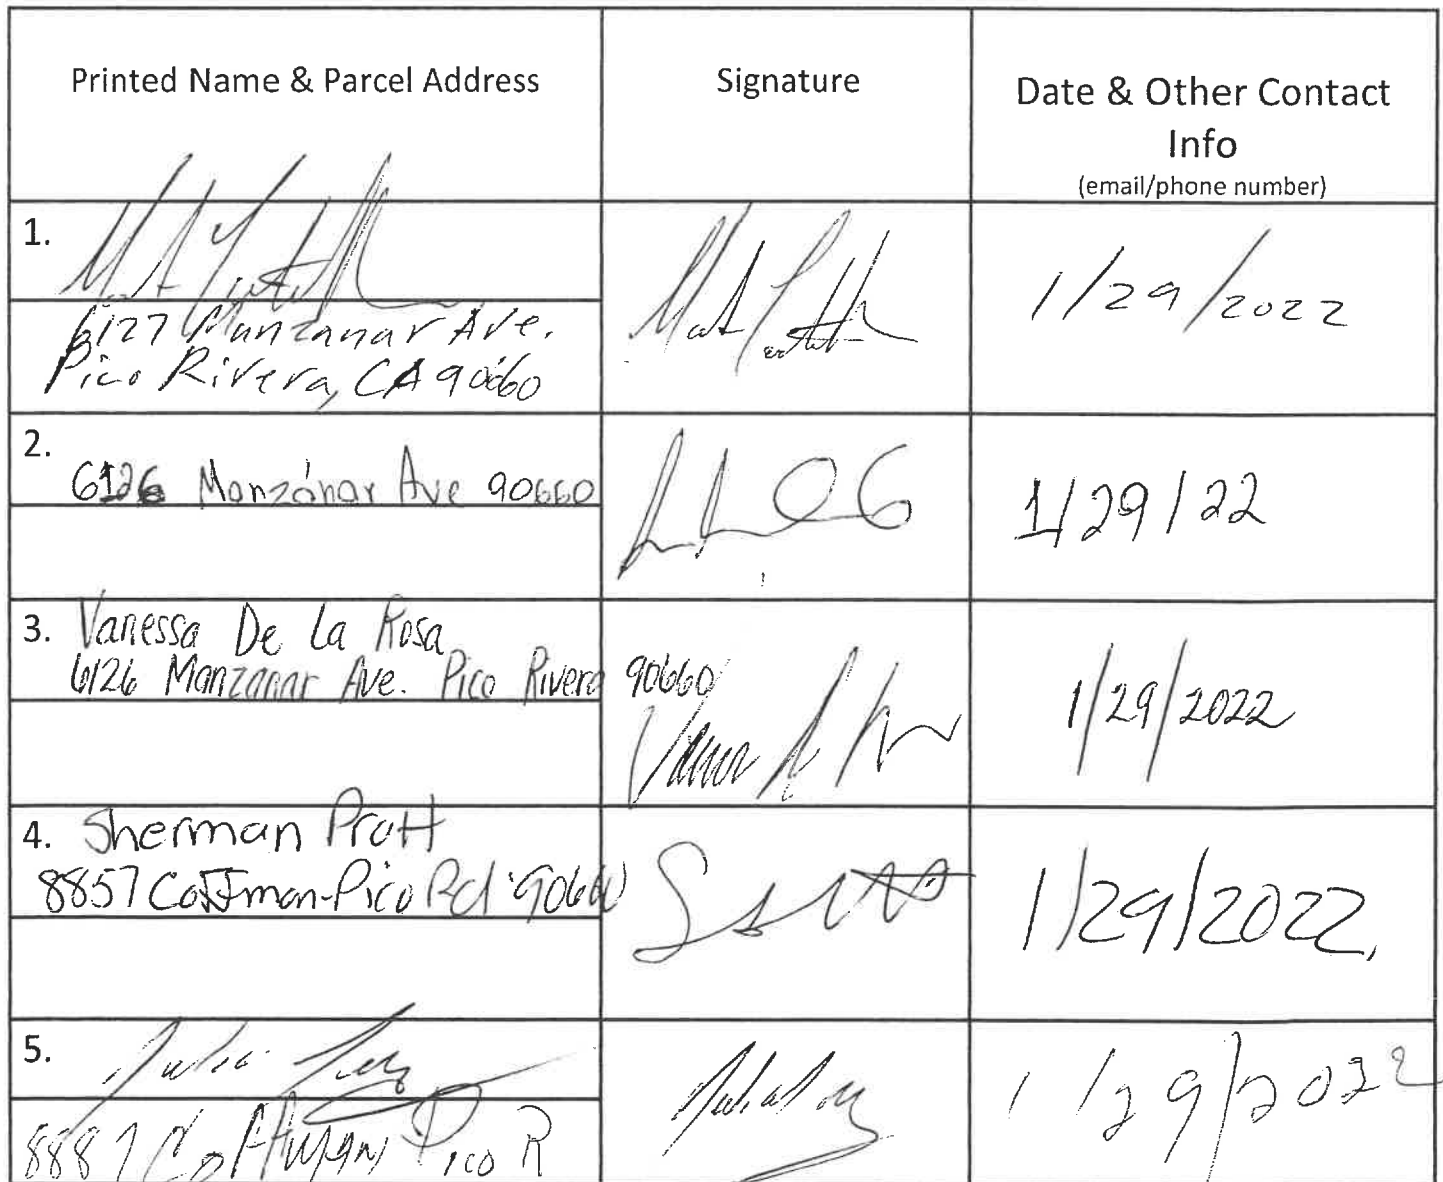 Printed Name & Parcel Address
Signature
Date & Other Contact
Info
(email/phone number)
1.
6127 Manzanar Ave.
Pico Rivera, CA 90660
1/29/2022
2.
6126 Manzanar Ave 90660
1/29/22
3. Vanessa De La Rosa
6126 Manzanar Ave. Pico Rivera 90660
1/29/2022
4. Sherman Pratt
8857 Coffman-Pico Rd 90660
1/29/2022
5. Julia
8887 Coffman Pico R
1/29/2022